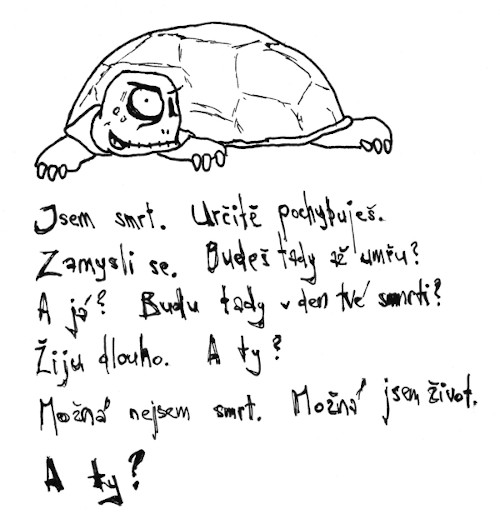 Jsem smrt. Určitě pochybuješ.
Zamysli se. Budeš tady až umřu?
A já? Budu tady v den tvé smrti?
Žiju dlouho. A ty?
Možná nejsem smrt. Možná jsem život.
A ty?